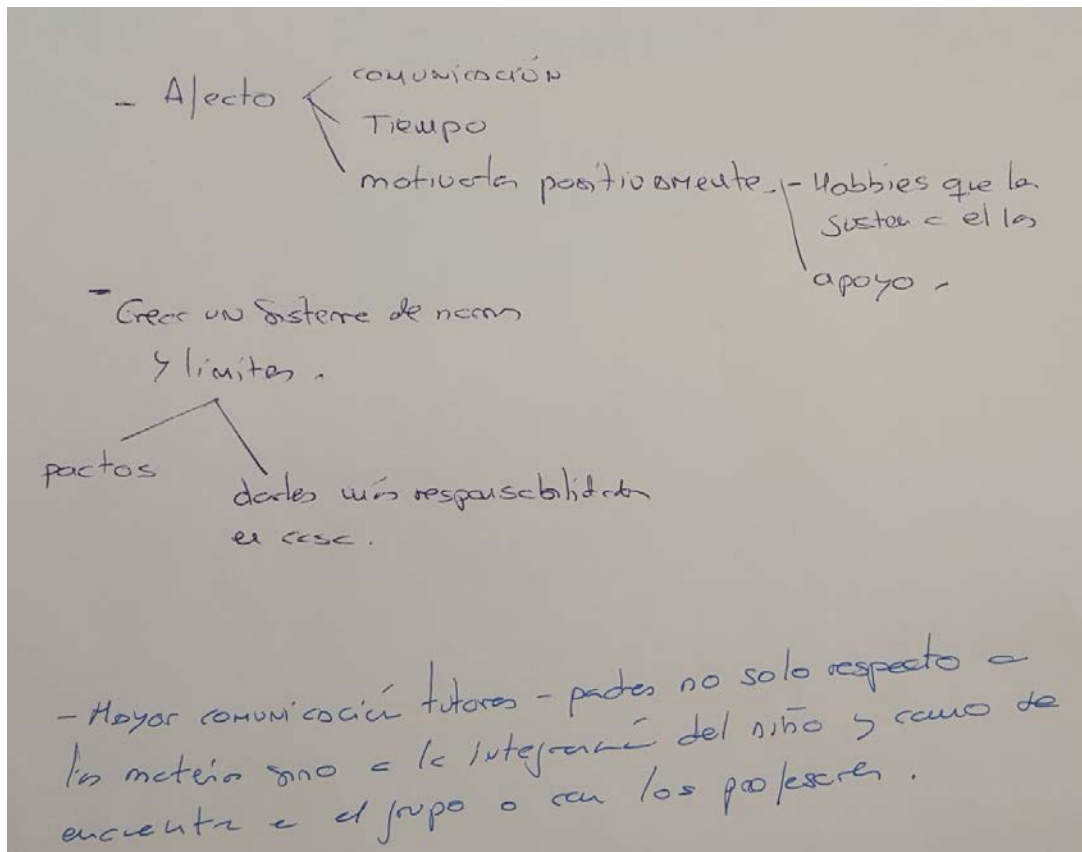 - Afecto
comunicación
Tiempo
motivarlos positivamente.
- Hobbies que les
gusten a ellos
apoyo.
- Crear un sistema de normas
y límites.
pactos
darles más responsabilidades
en casa.
- Mayor comunicación tutores - padres no solo respecto a
las materias sino a la integración del niño y como se
encuentra en el grupo o con los profesores.